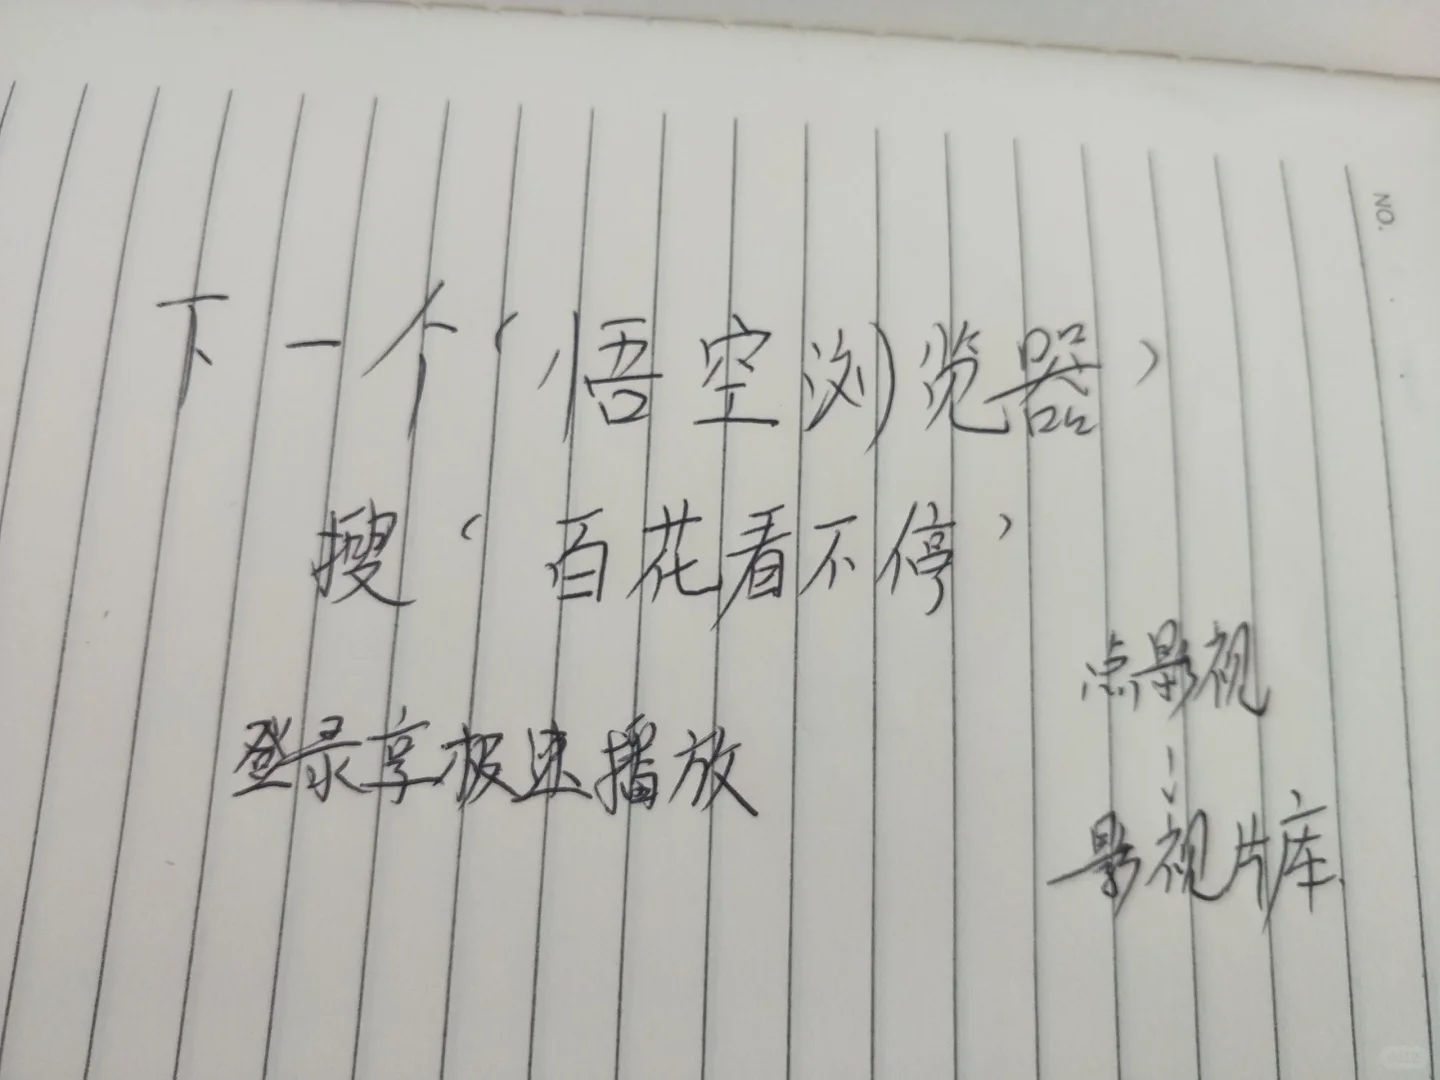 NO.
下一个‘悟空浏览器’
搜‘百花看不停’
点影视
登录享极速播放
影视片库